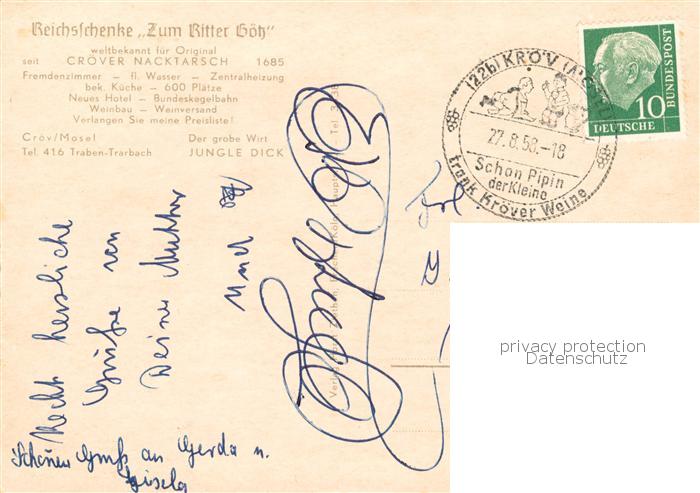 Reichsschenke „Zum Ritter Götz“
weltbekannt für Original
seit CRÖVER NACKTARSCH 1685
Fremdenzimmer — fl. Wasser — Zentralheizung
bek. Küche — 600 Plätze
Neues Hotel — Bundeskegelbahn
Weinbau — Weinversand
Verlangen Sie meine Preisliste!
Cröv/Mosel Der grobe Wirt
Tel. 416 Traben-Trarbach JUNGLE DICK
(22b) KRÖV (MOSEL)
27.8.58.-18
Schon Pipin
der Kleine
trank Kröver Weine
DEUTSCHE BUNDESPOST
10
Recht herzliche
Grüße von
Deiner Mutter
und
Schönen Gruß an Gerda u.
Gisela
privacy protection
Datenschutz